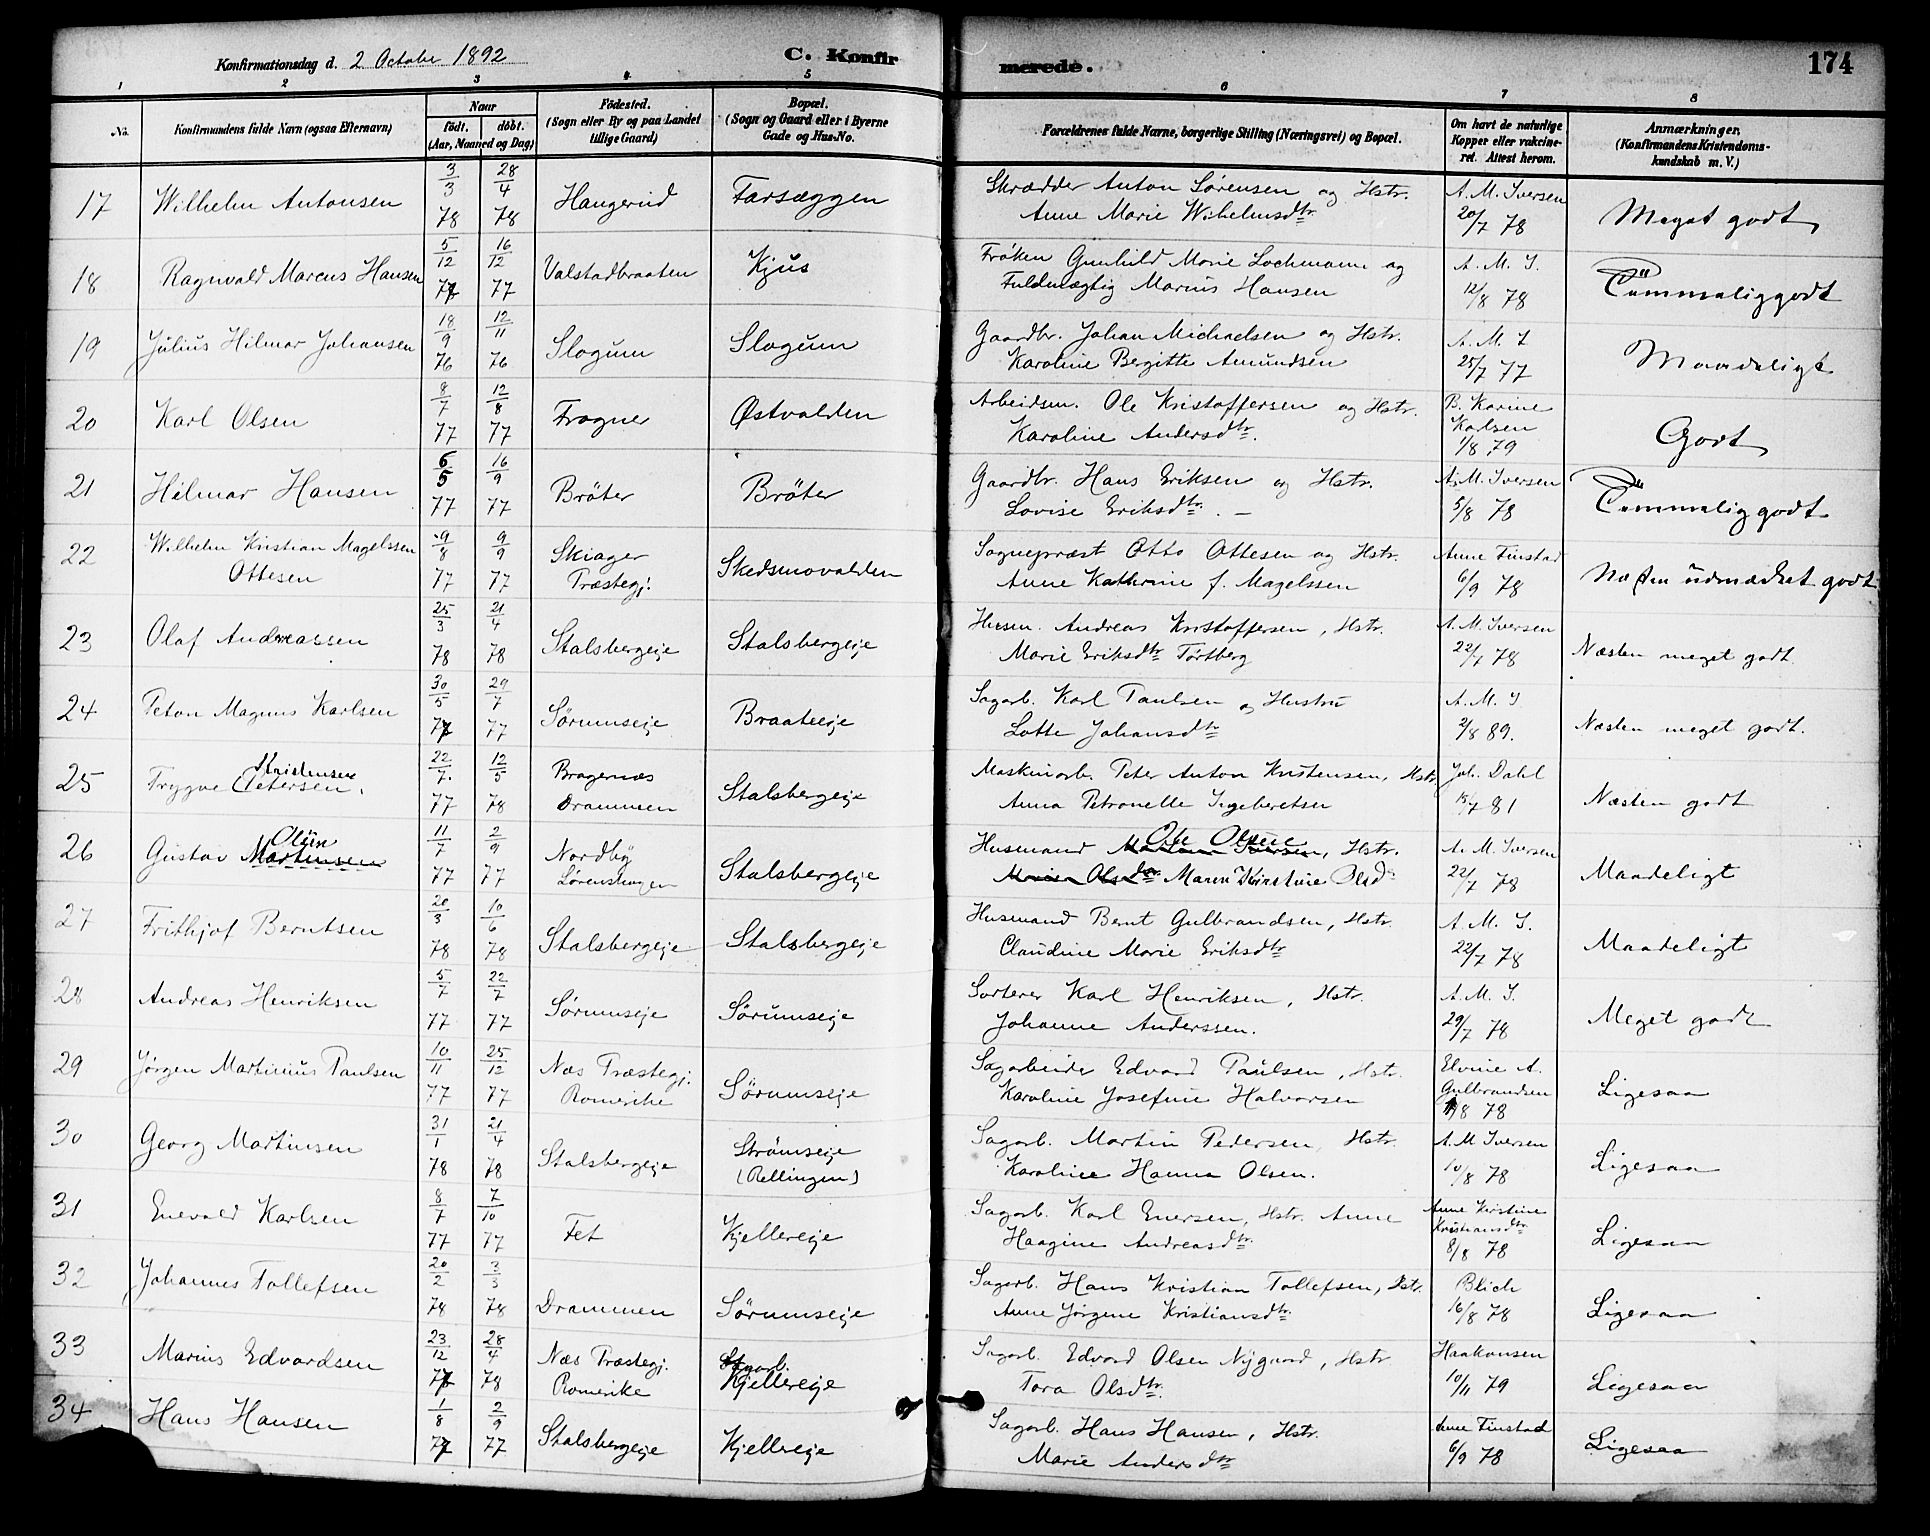 Konfirmationsdag d. 2 October 1892
C. Konfirmerede.
174
1 2 3 4 5 6 7 8
No.
Konfirmandens fulde Navn (ogsaa Efternavn)
Naar
födt.
döbt.
(Aar, Maaned og Dag)
Födested.
(Sogn eller By og paa Landet
tillige Gaard)
Bopæl.
(Sogn og Gaard eller i Byerne
Gade og Hus-No.
Forældrenes fulde Navne, borgerlige Stilling (Næringsvei) og Bopæl.
Om havt de naturlige
Kopper eller vakcine-
ret. Attest herom.
Anmærkninger,
(Konfirmandens Kristendoms-
kundskab m. V.)
17 Wilhelm Antonsen 3/3 78 28/4 78 Haugerud Farsæggen
Skrædder Anton Sørensen og Hstr.
Anne Marie Wilhelmsdtr
A. M. Iversen
20/7 78
Meget godt
18 Ragnvald Marcus Hansen 5/12 77 16/12 77 Valstadbraaten Kjus
Frøken Gunhild Marie Lochmann og
Fuldmægtig Marius Hansen
A. M. I.
12/8 78
Temmeliggodt
19 Julius Hilmar Johansen 18/9 76 12/11 76 Slogum Slogum
Gaardbr. Johan Michaelsen og Hstr.
Karoline Bergitte Amundsen
A. M. I
25/7 77
Maadeligt
20 Karl Olsen 8/7 77 12/8 77 Frogner Østvolden
Arbeidsm. Ole Kristoffersen og Hstr.
Karoline Andersdtr.
B. Karine
Karlsen
1/8 79
Godt
21 Hilmar Hansen 6/5 77 16/9 77 Bröter Bröter
Gaardbr. Hans Eriksen og Hstr.
Lovise Eriksdtr. –
A. M. Iversen
5/8 78
Temmeliggodt
22 Wilhelm Kristian Magelssen
Ottesen
9/8 77 9/9 77
Skiager
Præstegj.
Skedsmovolden
Sognepræst Otto Ottesen og Hstr.
Anne Kathrine f. Magelssen
Anne Finstad
6/9 78
Næsten üdmærket godt
23 Olaf Andreassen 25/3 78 21/4 78 Stalsbergeje Stalsbergeje
Husm. Andreas Kristoffersen, Hstr.
Marie Eriksdtr Törtberg
A. M. Iversen
22/7 78
Næsten meget godt.
24 Peton Magnus Karlsen 30/5 77 29/7 77 Sørumseje Braateeje
Sagarb. Karl Paulsen og Hustru
Lotte Johansdtr
A. M. I
2/8 89.
Næsten meget godt.
25 Trygve Petersen. Kristensen 22/7. 77 12/5 78
Bragernæs
Drammen
Stalsbergeje
Maskinarb. Peter Anton Kristensen, Hstr
Anna Petronelle Ingebretsen
Joh. Dahl
15/7 81
Næsten godt
26 Gustav Martinsen Olsen 11/7 77 2/9 77
Nordby
Lørenskogen
Stalsbergeje
Husmand Martin Iversen, Ole Olsen Hstr.
Maren Olsdtr Maren Kirstine Olsdtr
A. M. Iversen
22/7 78
Maadeligt
27 Frithjof Berntsen 20/3 78 10/6 78 Stalsbergeje Stalsbergeje
Husmand Bernt Gulbrandsen, Hstr.
Claudine Marie Eriksdtr
A. M. I.
22/7 78
Maadeligt
28 Andreas Henriksen 5/7 77 22/7 77 Sørumseje Sørumseje
Sorterer Karl Henriksen, Hstr.
Johanne Anderssen.
A. M. I.
29/7 78
Meget godt
29 Jørgen Martinius Paulsen 10/11 77 25/12 77
Næs Præstegj.
Romerike
Sørumseje
Sagarbeider Edvard Paulsen, Hstr.
Karoline Josefine Halvorsen
Elvine A.
Gulbrandsen
/8 78
Ligesaa
30 Georg Martinsen 31/1 78 21/4 78 Stalsbergeje
Strømseje
(Rellingen)
Sagarb. Martin Pedersen, Hstr.
Karoline Hanna Olsen.
A. M Iversen
10/8 78
Ligesaa
31 Enevold Karlsen 8/7 77 7/10 77 Fet Kjellereje
Sagarb. Karl Enersen, Hstr. Anne
Haagine Andreasdtr.
Anne Kirstine
Kristiansdtr
8/8 78
Ligesaa
32 Johannes Tollefsen 20/2 78 3/3 78 Drammen Sørumseje
Sagarb. Hans Kristian Tollefsen, Hstr.
Anne Jørgine Kristiansdtr
Blich
16/8 78
Ligesaa
33 Marius Edvardsen 23/12 77 28/4 78
Næs Præstegj.
Romerike
Sagarb.
Kjellereje
Sagarb. Edvard Olsen Nygaard, Hstr
Tora Olsdtr.
Haakonsen
10/11 79
Ligesaa
34 Hans Hansen 1/8 77 2/9 77 Stalsbergeje Kjellreje
Sagarb. Hans Hansen, Hstr.
Marie Andersdtr
Anne Finstad
6/9 78
Ligesaa